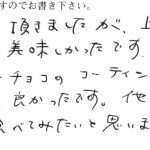 すのでお書き下さい。
頂きましたが、上
美味しかったです
チョコのコーティン
良かったです。他
食べてみたいと思いま